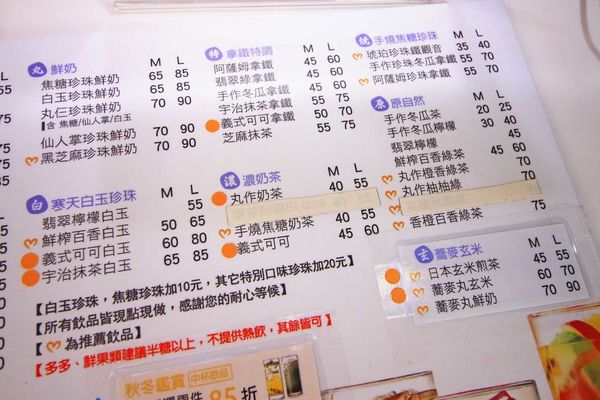 丸 鮮奶 M L
焦糖珍珠鮮奶 65 85
白玉珍珠鮮奶 65 85
丸仨珍珠鮮奶 70 90
含 焦糖/仙人掌/白玉
仙人掌珍珠鮮奶 70 90
黑芝麻珍珠鮮奶 70 90
白 寒天白玉珍珠 M L
翡翠檸檬白玉 55
鮮榨百香白玉 50 65
義式可可白玉 60
宇治抹茶白玉 65
特 拿鐵特調 M L
阿薩姆拿鐵 45 60
翡翠綠拿鐵 45 60
手作冬瓜拿鐵 45 60
宇治抹茶拿鐵 55 75
義式可可拿鐵 50 70
芝麻抹茶 55 75
濃 濃奶茶 M L
丸作奶茶 40 55
手燒焦糖奶茶 40 55
義式可可 45 60
燒 手燒焦糖珍珠 M L
琥珀珍珠鐵觀音 35 40
手作珍珠冬瓜拿鐵 55 70
阿薩姆珍珠拿鐵 55 70
原 原自然 M L
手作冬瓜茶 20 25
手作冬瓜檸檬 30 40
翡翠檸檬 45
鮮榨百香綠茶 55
丸作橙香綠茶 70
丸作柚柚綠
香橙百香綠茶 75
玄 蕎麥玄米 M L
日本玄米煎茶 45 55
蕎麥丸玄米 60 70
蕎麥丸鮮奶 70 90
【白玉珍珠，焦糖珍珠加10元，其它特別口味珍珠加20元】
【所有飲品皆現點現做，感謝您的耐心等候】
【 為推薦飲品】
【多多、鮮果類建議半糖以上，不提供熱飲，其餘皆可】
秋冬鑑賞 中杯飲品
兩件 85折